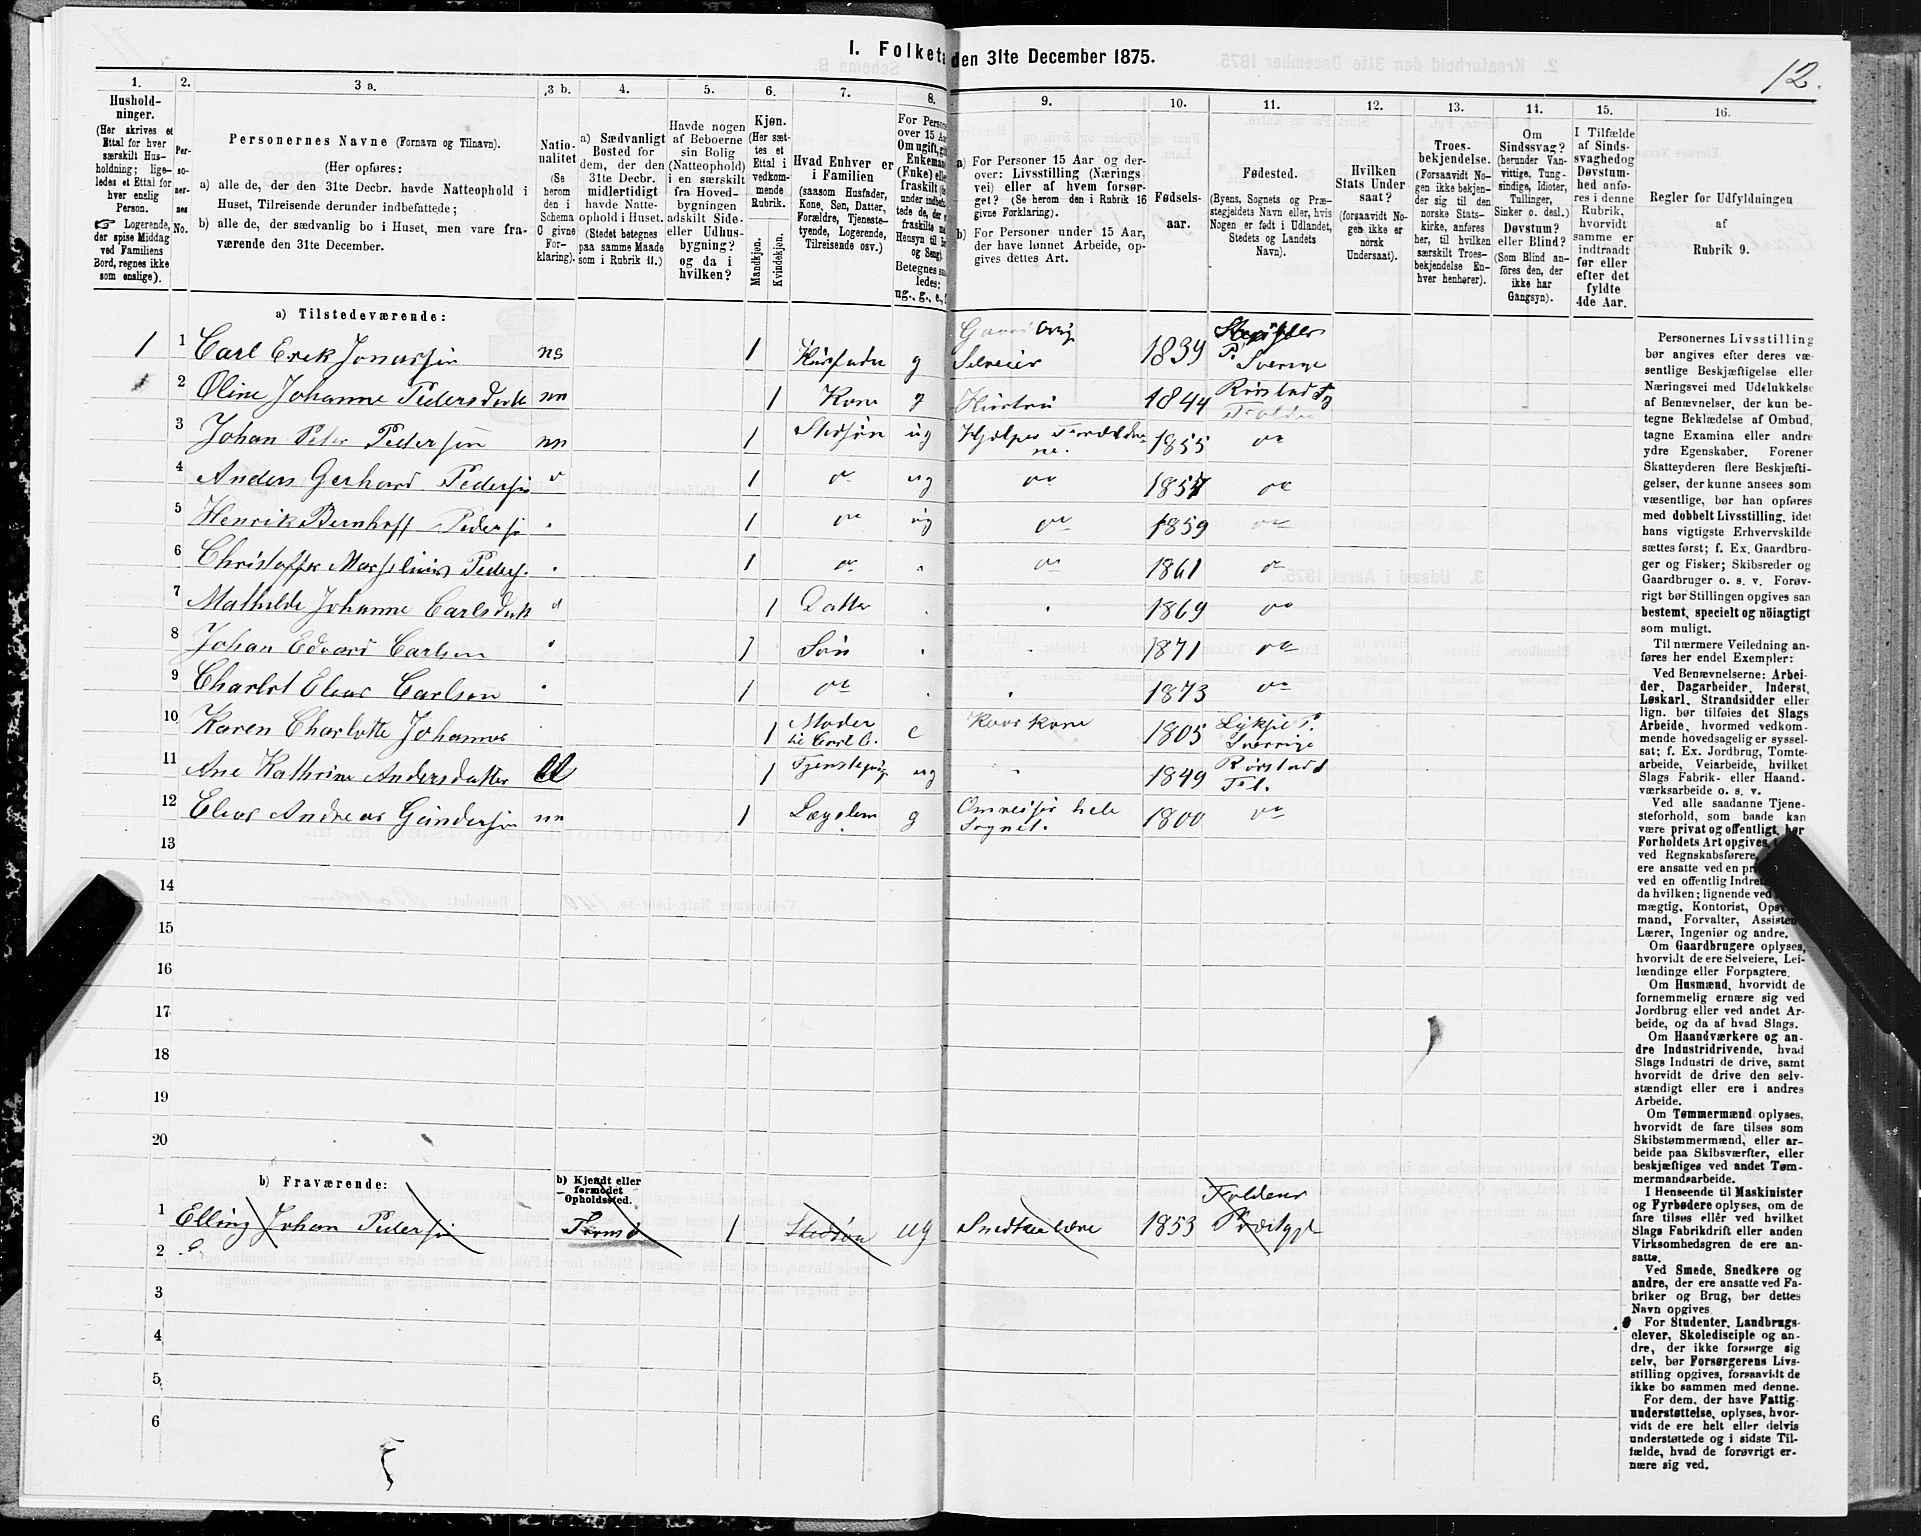 I. Folketæ den 31te December 1875.
12.
1.
2.
3 a.
3 b.
4.
5.
6.
7.
8.
9.
10.
11.
12.
13.
14.
15.
16.
Hushold-
ninger.
(Her skrives et
Ettal for hver
særskilt Hus-
holdning; lige-
ledes et Ettal for
hver enslig
Person.
☞ Logerende,
der spise Middag
ved Familiens
Bord, regnes ikke
som enslige).
Per-
so-
ner-
nes
No.
Personernes Navne (Fornavn og Tilnavn).
(Her opføres:
a) alle de, der den 31te Decbr. havde Natteophold i
Huset, Tilreisende derunder indbefattede;
b) alle de, der sædvanlig bo i Huset, men vare fra-
værende den 31te December.
Natio-
nalitet
(Se
herom
den i
Schema
C givne
For-
klaring).
a) Sædvanligt
Bosted for
dem, der den
31te Decbr.
midlertidigt
havde Natte-
ophold i Huset.
(Stedet betegnes
paa samme Maade
som i Rubrik 11.)
Havde nogen
af Beboerne
sin Bolig
(Natteophold)
i en særskilt
fra Hoved-
bygningen
adskilt Side-
eller Udhus-
bygning?
og da i
hvilken?
Kjøn.
(Her sæt-
tes et
Ettal i
vedkom-
mende
Rubrik.
Mandkjøn.
Kvindekjøn.
Hvad Enhver er
i Familien
(saasom Husfader,
Kone, Søn, Datter,
Forældre, Tjeneste-
tyende, Logerende,
Tilreisende osv.)
For Person
over 15 Aar
Om ugift, gift
Enkemand
(Enke) eller
fraskilt
under indbef
tede de, der
fraskilte
Hensyn til
og Seng).
Betegnes saa-
ledes:
ug., g., e.,
a) For Personer 15 Aar og der-
over: Livsstilling (Nærings-
vei) eller af hvem forsør-
get? (Se herom den i Rubrik 16
givne Forklaring).
b) For Personer under 15 Aar,
der have lønnet Arbeide, op-
gives dettes Art.
Fødsels-
aar.
Fødested.
(Byens, Sognets og Præ-
stegjeldets Navn eller, hvis
Nogen er født i Udlandet,
Stedets og Landets
Navn).
Hvilken
Stats Under-
saat?
(forsaavidt No-
gen ikke er
norsk
Undersaat).
Troes-
bekjendelse.
(Forsaavidt No-
gen ikke bekjen-
der sig til den
norske Stats-
kirke, anføres
her, til hvilken
særskilt Troes-
bekjendelse En-
hver henhører).
Om
Sindssvag?
(herunder Van-
vittige, Tung-
sindige, Idioter,
Tullinger,
Sinker o. desl.)
Døvstum?
eller Blind?
(Som Blind an-
føres den, der
ikke har
Gangsyn).
I Tilfælde
af Sinds-
svaghed og
Døvstum-
hed anfø-
res i denne
Rubrik,
hvorvidt
samme er
indtraadt
før eller
efter det
fyldte
4de Aar.
Regler for Udfyldningen
af
Rubrik 9.
a) Tilstedeværende:
1 1 Carl Erek Jonassøn ns 1 Husfader g Selveier 1839 P. Sverige
2 Oline Johanne Pedersdatt nn 1 Kone g Hustru 1844 Rørstad
3 Johan Peter Pedersøn nn 1 Stedsøn ug Hjælper Forældrene. 1855 do
4 Anders Gerhard Pedersøn d 1 do ug do 1857 do
5 Henrik Bernhoff Peders 1 do ug do 1859 do
6 Christoffer Marselius Peders. 1 do do 1861 do
7 Mathilde Johanne Carlsdatt d 1 Datter 1869 do
8 Johan Edvard Carlsen 1 Søn 1871 do
9 Charlot Elias Carlson 1 do 1873 do
10 Karen Charlotte Johannes 1 Moder til Carl e Kaarkone 1805 P. Sverrige
11 Ane Kathrine Andersdatter 1 ug 1849 Rørstad Fol.
12 Elias Andreas Gundersøn nn 1 Lægslem g Omreiser hele Sognet. 1800 do
13
14
15
16
17
18
19
20
b) Fraværende:
b) Kjendt eller
formodet
Opholdssted.
1 Elling Johan Pedersøn Tromsø 1 Stedsøn ug Snedkerlære 1853 Foldens
2
3
4
5
6
Personernes Livsstilling
bør angives efter deres væ-
sentlige Beskjæftigelse eller
Næringsvei med Udelukkelse
af Benævnelser, der kun be-
tegne Beklædelse af Ombud,
tagne Examina eller andre
ydre Egenskaber. Forener
Skatteyderen flere Beskjæfti-
gelser, der kunne ansees som
væsentlige, bør han opføres
med dobbelt Livsstilling, idet
hans vigtigste Erhvervskilde
sættes først; f. Ex. Gaardbru-
ger og Fisker; Skibsreder og
Gaardbruger o. s. v. Forøv-
rigt bør Stillingen opgives saa
bestemt, specielt og nöiagtigt
som muligt.
Til nærmere Veiledning an-
føres her endel Exempler:
Ved Benævnelserne: Arbei-
der, Dagarbeider, Inderst,
Løskarl, Strandsidder eller
lign. bør tilføies det Slags
Arbeide, hvormed vedkom-
mende hovedsagelig er syssel-
sat; f. Ex. Jordbrug, Tomte-
arbeide, Veiarbeide, hvilket
Slags Fabrik- eller Haand-
værksarbeide o. s. v.
Ved alle saadanne Tjene-
steforhold, som baade kan
være privat og offentligt, bør
Forholdets Art opgives,
ved Regnskabsførere,
ere ansatte ved en pr
ved en offentlig Indret
da hvilken; lignende ved
mægtig, Kontorist, Opsy
mand, Forvalter, Assisten
Lærer, Ingeniør og andre.
Om Gaardbrugere oplyses,
hvorvidt de ere Selveiere, Lei-
lændinge eller Forpagtere.
Om Husmænd, hvorvidt de
fornemmelig ernære sig ved
Jordbrug eller ved andet Ar-
beide, og da af hvad Slags.
Om Haandværkere og an-
dre Industridrivende, hvad
Slags Industri de drive, samt
hvorvidt de drive den selv-
stændigt eller ere i andres
Arbeide.
Om Tømmermænd oplyses,
hvorvidt de fare tilsøs som
Skibstømmermænd, eller ar-
beide paa Skibsværfter, eller
beskjæftiges ved andet Tøm-
mermandsarbeide.
I Henseende til Maskinister
og Fyrbødere oplyses, om de
fare tilsøs eller ved hvilket
Slags Fabrikdrift eller anden
Virksomhedsgren de ere an-
satte.
Ved Smede, Snedkere og
andre, der ere ansatte ved Fa-
briker og Brug, bør dettes
Navn opgives.
For Studenter, Landbrugs-
elever, Skoledisciple og an-
dre, der ikke forsørge sig
selv, bør Forsørgerens Livs-
stilling opgives, forsaavidt de
ikke bo sammen med denne.
For dem, der have Fattig-
understøttelse, oplyses, hvor-
vidt de ere helt eller delvis
understøttede og i sidste Til-
fælde, hvad de forøvrigt er-
nære sig ved.